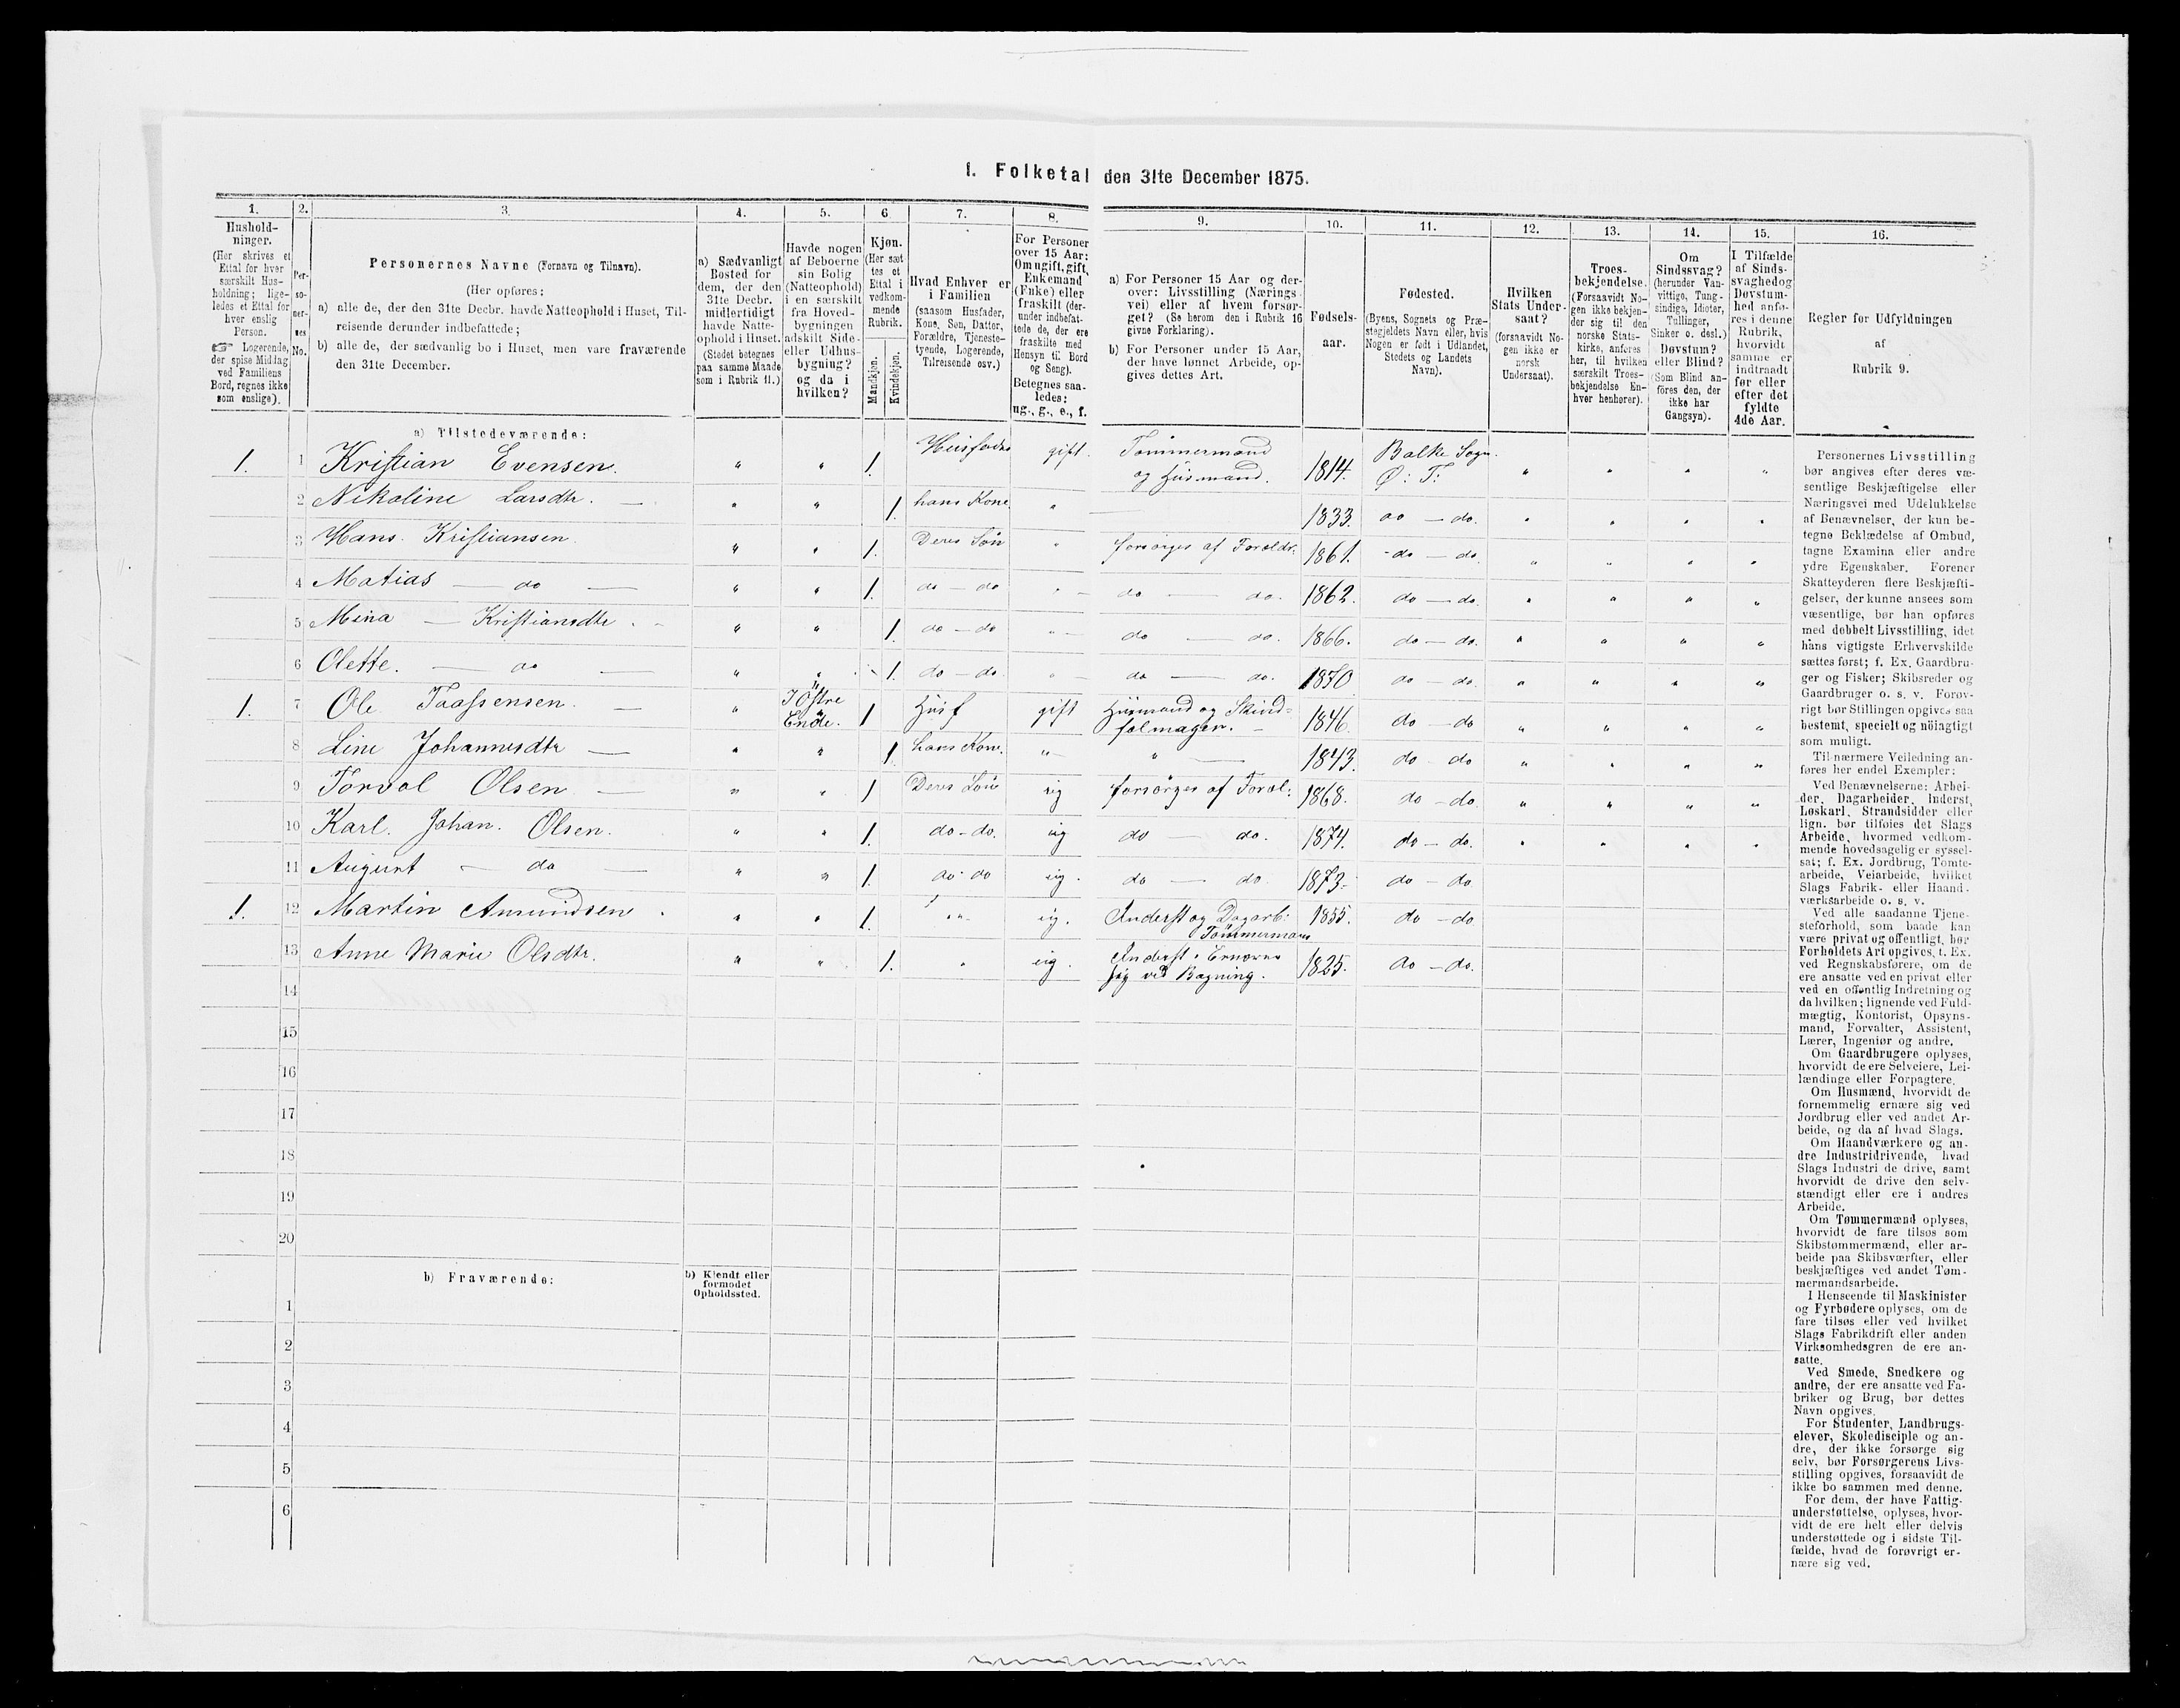 1. Folketal den 31te December 1875.
1.
Hushold-
ninger.
(Her skrives et
Ettal for hver
særskilt Hus-
holdning; lige-
ledes et Ettal for
hver enslig
Person.
☞ Logerende,
der spise Middag
ved Familiens
Bord, regnes ikke
som enslige).
2.
Per-
so-
ner-
nes
No.
3.
Personernes Navne (Fornavn og Tilnavn).
(Her opføres:
a) alle de, der den 31te Decbr. havde Natteophold i Huset, Til-
reisende derunder indbefattede;
b) alle de, der sædvanlig bo i Huset, men vare fraværende
den 31te December.
4.
a) Sædvanligt
Bosted for
dem, der den
31te Decbr.
midlertidigt
havde Natte-
ophold i Huset.
(Stedet betegnes
paa samme Maade
som i Rubrik 11.)
5.
Havde nogen
af Beboerne
sin Bolig
(Natteophold)
i en særskilt
fra Hoved-
bygningen
adskilt Side-
eller Udhus-
bygning?
og da i
hvilken?
6.
Kjøn.
(Her sæt
tes et
Ettal i
vedkom-
mende
Rubrik.
Mandkjøn.
Kvindekjøn.
7.
Hvad Enhver er
i Familien
(saasom Husfader,
Kone, Søn, Datter,
Forældre, Tjeneste-
tyende, Logerende,
Tilreisende osv.)
8.
For Personer
over 15 Aar:
Om ugift, gift,
Enkemand
(Enke) eller
fraskilt (der-
under indbefat-
tede de, der ere
fraskilte med
Hensyn til Bord
og Seng).
Betegnes saa-
ledes:
ug., g., e., f.
9.
a) For Personer 15 Aar og der-
over: Livsstilling (Nærings-
vei) eller af hvem forsør-
get? (Se herom den i Rubrik 16
givne Forklaring).
b) For Personer under 15 Aar,
der have lønnet Arbeide, op-
gives dettes Art.
10.
Fødsels-
aar.
11.
Fødested.
(Byens, Sognets og Præ-
stegjeldets Navn eller, hvis
Nogen er født i Udlandet,
Stedets og Landets
Navn).
12.
Hvilken
Stats Under-
saat?
(forsaavidt No-
gen ikke er
norsk
Undersaat).
13.
Troes-
bekjendelse.
(Forsaavidt No-
gen ikke bekjen-
der sig til den
norske Stats-
kirke, anføres
her, til hvilken
særskilt Troes-
bekjendelse En-
hver henhører).
14.
Om
Sindssvag?
(herunder Van-
vittige, Tung-
sindige, Idioter,
Tullinger,
Sinker o. desl.)
Døvstum?
eller Blind?
(Som Blind an-
føres den, der
ikke har
Gangsyn).
15.
I Tilfælde
af Sinds-
svaghed og
Døvstum-
hed anfø-
res i denne
Rubrik,
hvorvidt
samme er
indtraadt
før eller
efter det
fyldte
4de Aar.
16.
Regler for Udfyldningen
af
Rubrik 9.
a) Tilstedeværende:
1. 1 Kristian Evensen. " " 1. Husfader gift. Tømmermand og Husmand. 1814. Balke Sogn. Ø: T: " " " "
2 Nikoline Larsdtr. — " " 1. hans Kone. " — 1833. do — do. " " " "
3 Hans Kristiansen. " " 1. Deres Søn " forsørges af Foreldr: 1861. do — do. " " " "
4 Matias — do — " " 1. do — do " do — do. 1862. do — do. " " " "
5 Mina — Kristiansdtr. " " 1. do — do " do — do. 1866. do — do. " " " "
6 Olette. — do — " " 1. do — do. " do — do. 1870 do — do. " " " "
1. 7 Ole — " I Østre Ende. 1 Husf gift Husmand og Skind- 1846. do — do " " " "
8 Line Johannesdtr — " " 1 hans Kone. " " — 1843. do — do " " " "
9 Torval Olsen — " " 1 Deres Søn ug forsørges af Foræl: 1868. do — do. " " " "
10 Karl Johan. Olsen. " " 1. do - do. ug do — do. 1874. do — do. " " " "
11 August — do — " " 1. do - do ug. do — do 1873. do — do
1. 12 Martin Amundsen. " " 1. " ug. Inderst og Dagarb: Tømmermann 1855. do — do
13 Anne Marie Olsdtr. " " 1. " ug. Inderst. Ernærer sig ved Bagning. 1825. do — do.
14
15
16
17
18
19
20
b) Fraværende:
b) Kjendt eller
formodet
Opholdssted.
1
2
3
4
5
6
Personernes Livsstilling
bør angives efter deres væ-
sentlige Beskjæftigelse eller
Næringsvei med Udelukkelse
af Benævnelser, der kun be-
tegne Beklædelse af Ombud,
tagne Examina eller andre
ydre Egenskaber. Forener
Skatteyderen flere Beskjæfti-
gelser, der kunne ansees som
væsentlige, bør han opføres
med dobbelt Livsstilling, idet
hans vigtigste Erhvervskilde
sættes først; f. Ex. Gaardbru-
ger og Fisker; Skibsreder og
Gaardbruger o. s. v. Forøv-
rigt bør Stillingen opgives saa
bestemt, specielt og nöiagtigt
som muligt.
Til nærmere Veiledning an-
føres her endel Exempler:
Ved Benævnelserne: Arbei-
der, Dagarbeider, Inderst,
Løskarl, Strandsidder eller
lign. bør tilføies det Slags
Arbeide, hvormed vedkom-
mende hovedsagelig er syssel-
sat; f. Ex. Jordbrug, Tomte-
arbeide, Veiarbeide, hvilket
Slags Fabrik- eller Haand-
værksarbeide o. s. v.
Ved alle saadanne Tjene-
steforhold, som baade kan
være privat og offentligt, bør
Forholdets Art opgives, t. Ex.
ved Regnskabsførere, om de
ere ansatte ved en privat eller
ved en offentlig Indretning og
da hvilken; lignende ved Fuld-
mægtig, Kontorist, Opsyns-
mand, Forvalter, Assistent,
Lærer, Ingeniør og andre.
Om Gaardbrugere oplyses,
hvorvidt de ere Selveiere, Lei-
lændinge eller Forpagtere.
Om Husmænd, hvorvidt de
fornemmelig ernære sig ved
Jordbrug eller ved andet Ar-
beide, og da af hvad Slags.
Om Haandværkere og an-
dre Industridrivende, hvad
Slags Industri de drive, samt
hvorvidt de drive den selv-
stændigt eller ere i andres
Arbeide.
Om Tømmermænd oplyses,
hvorvidt de fare tilsøs som
Skibstømmermænd, eller ar-
beide paa Skibsværfter, eller
beskjæftiges ved andet Tøm-
mermandsarbeide.
I Henseende til Maskinister
og Fyrbødere oplyses, om de
fare tilsøs eller ved hvilket
Slags Fabrikdrift eller anden
Virksomhedsgren de ere an-
satte.
Ved Smede, Snedkere og
andre, der ere ansatte ved Fa-
briker og Brug, bør dettes
Navn opgives.
For Studenter, Landbrugs-
elever, Skoledisciple og an-
dre, der ikke forsørge sig
selv, bør Forsørgerens Livs-
stilling opgives, forsaavidt de
ikke bo sammen med denne.
For dem, der have Fattig-
understøttelse, oplyses, hvor-
vidt de ere helt eller delvis
understøttede og i sidste Til-
fælde, hvad de forøvrigt er-
nære sig ved.